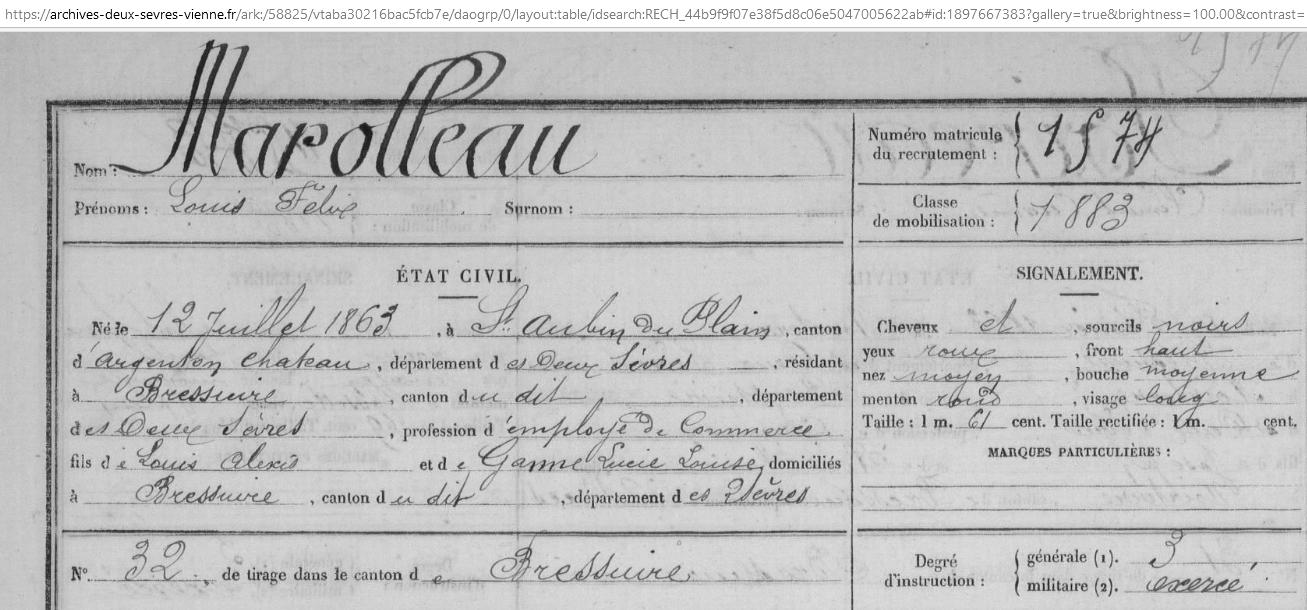 https://archives-deux-sevres-vienne.fr/ark:/58825/vtaba30216bac5fcb7e/daogrp/0/layout:table/idsearch:RECH_44b9f9f07e38f5d8c06e5047005622ab#id:1897667383?gallery=true&brightness=100.00&contrast=
Nom : Marolleau
Prénoms : Louis Félix Surnom :
Numéro matricule du recrutement : 1574
Classe de mobilisation : 1883
ÉTAT CIVIL.
Né le 12 Juillet 1863, à St Aubin du Plain, canton
d'argenton chateau, département des Deux Sèvres, résidant
à Bressuire, canton du dit, département
des Deux Sèvres, profession d'employé de Commerce
fils de Louis Alexis et de Ganne Lucie Louise, domiciliés
à Bressuire, canton du dit, département des 2 Sèvres
N° 32, de tirage dans le canton de Bressuire
SIGNALEMENT.
Cheveux et, sourcils noirs
yeux roux, front haut
nez moyen, bouche moyenne
menton rond, visage long
Taille : 1 m. 61 cent. Taille rectifiée : 1 m. cent.
MARQUES PARTICULIÈRES :
Degré d'instruction : générale (1). 3
militaire (2). exercé